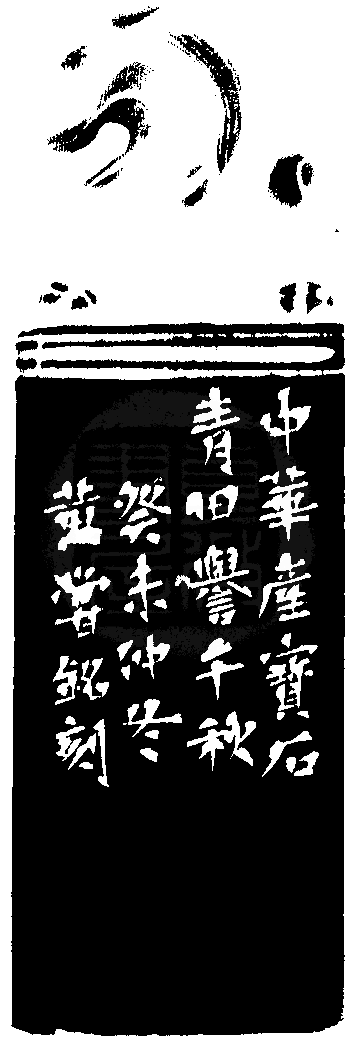 中華產寶石
青田譽千秋
癸未仲冬
黃嘗銘刻